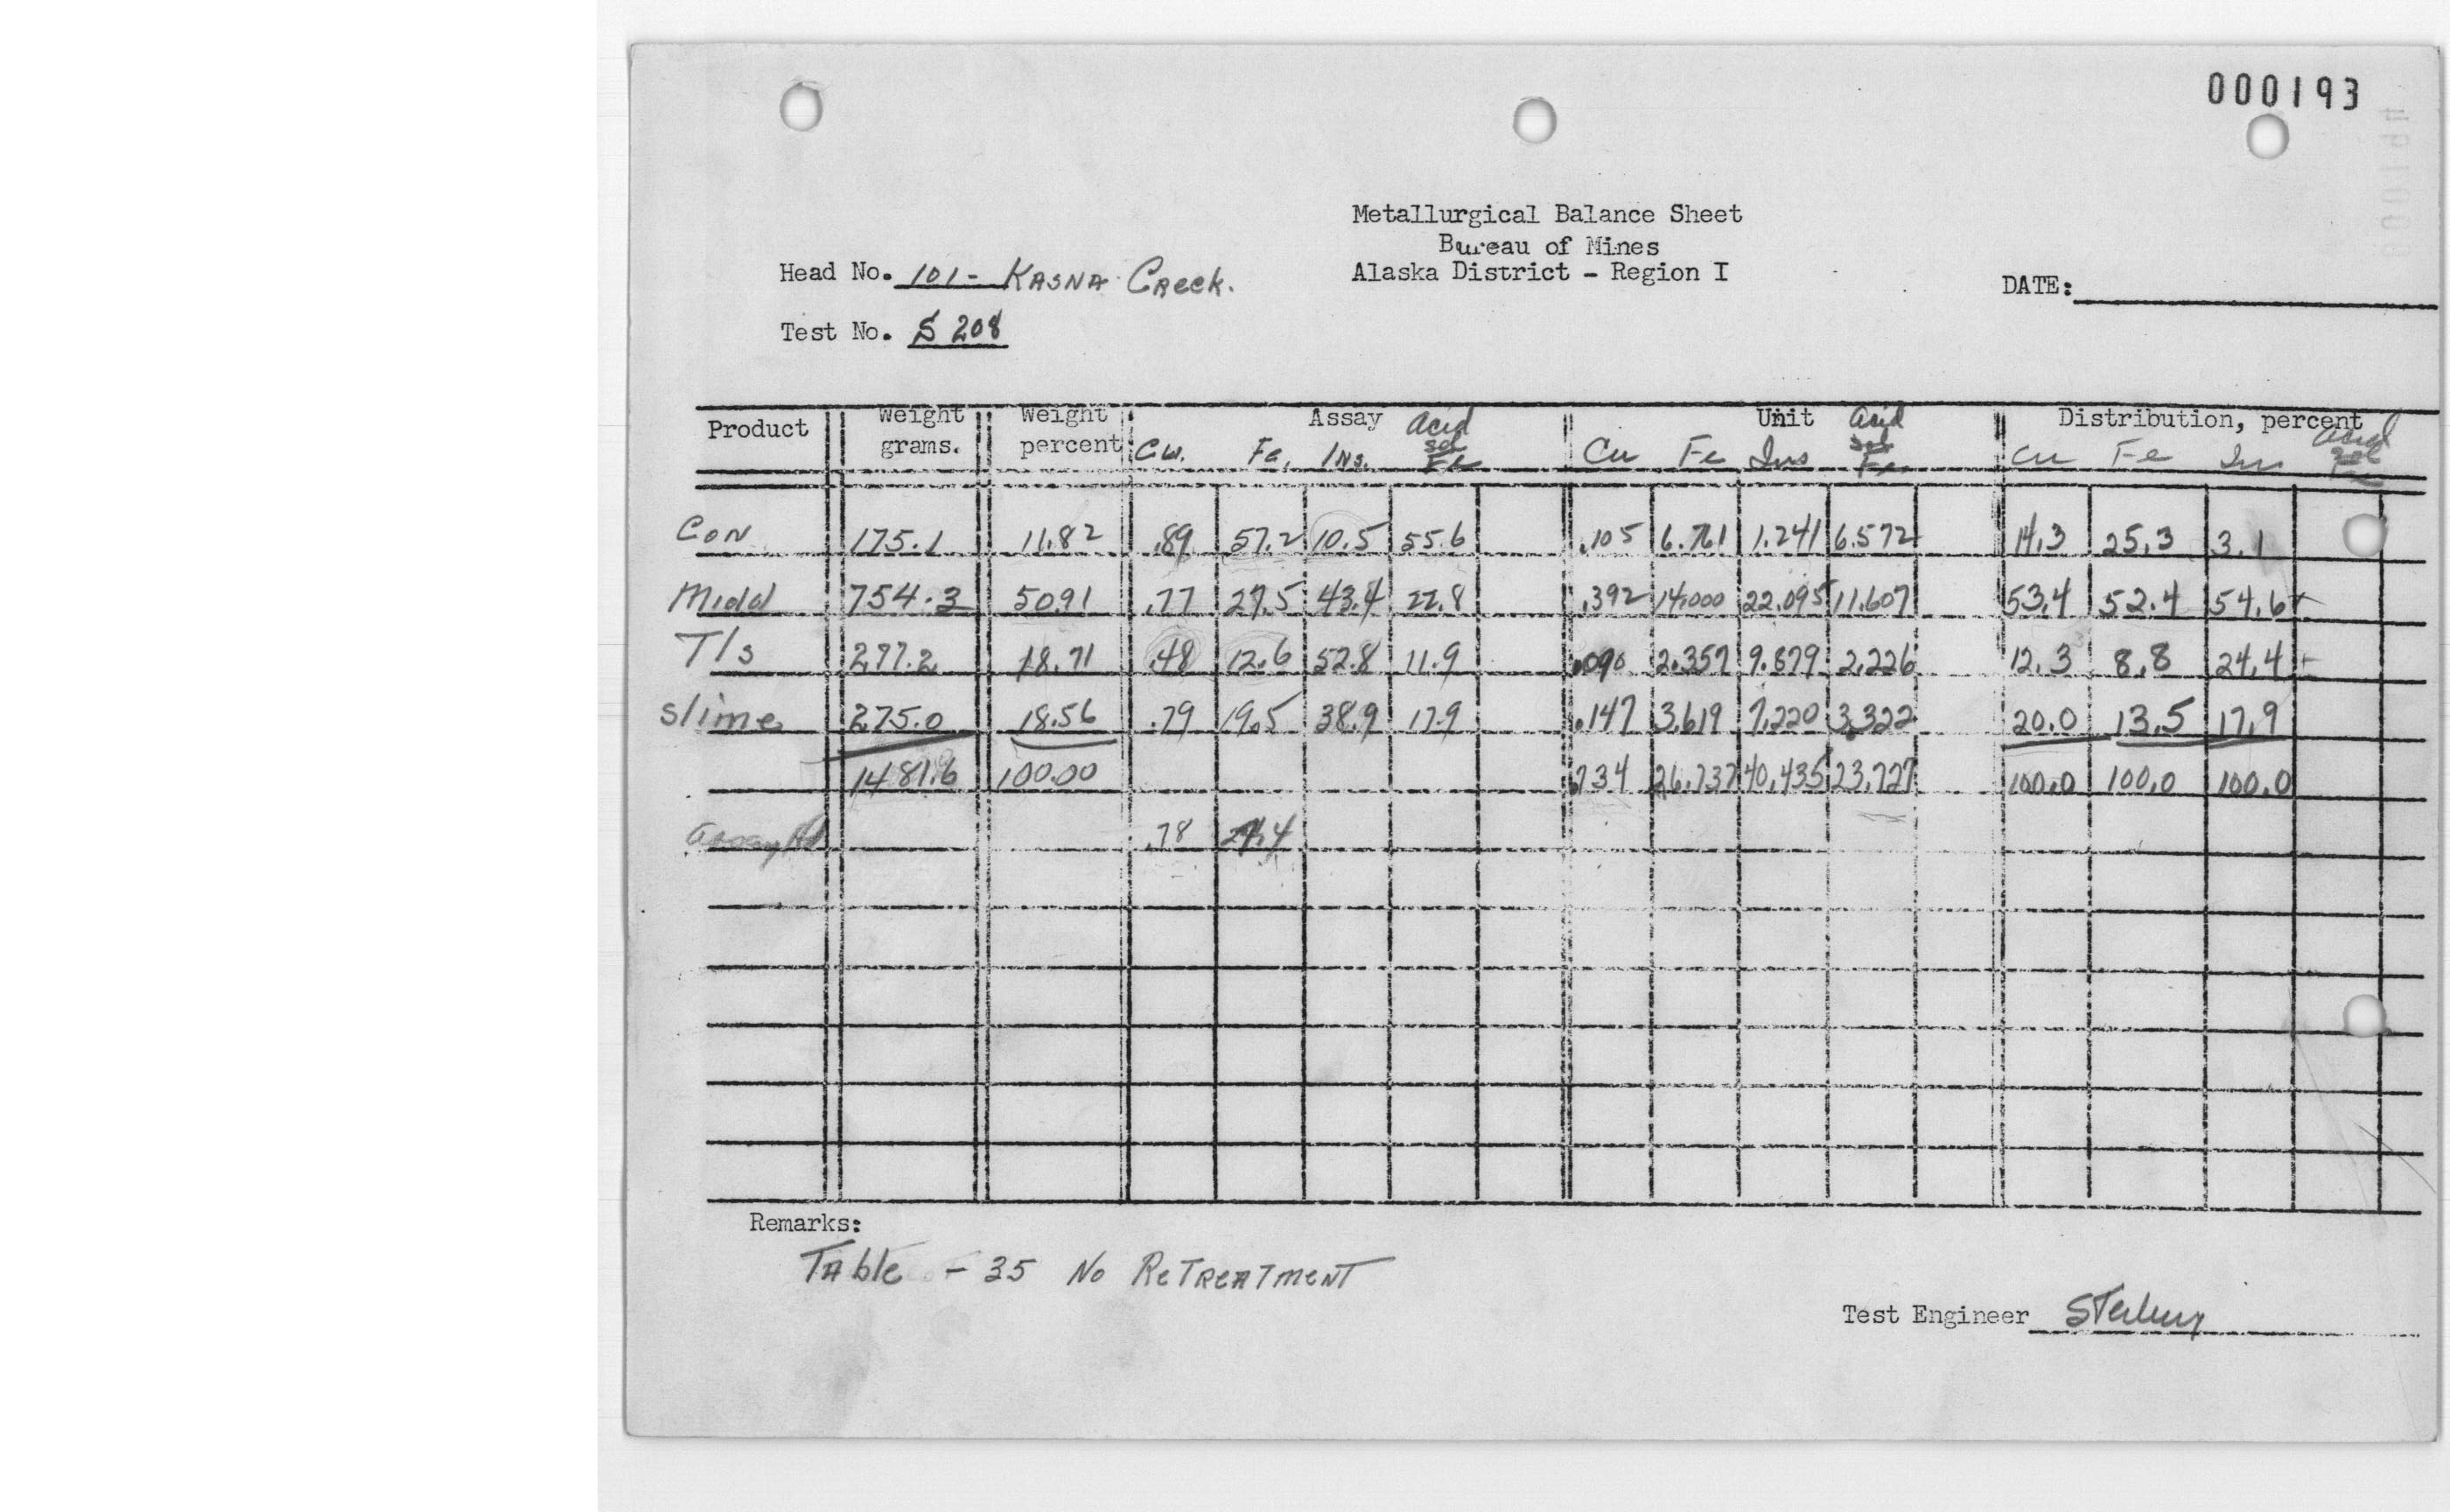 000193
Metallurgical Balance Sheet
Bureau of Mines
Alaska District - Region I
Head No. 101 - KASNA CReek.
DATE:
Test No. S 208
Product Weight grams. Weight percent Assay Unit Distribution, percent
Cu. Fe. INS. Acid sol Fe Cu Fe Ins Acid sol Fe Cu Fe Ins Acid sol Fe
CON 175.1 11.82 .89 57.2 10.5 55.6 .105 6.761 1.241 6.572 14.3 25.3 3.1
Midd 754.3 50.91 .77 27.5 43.4 22.8 .392 14.000 22.095 11.607 53.4 52.4 54.6+
T/s 277.2 18.71 .48 12.6 52.8 11.9 .090 2.357 9.879 2.226 12.3 8.8 24.4+
slime 275.0 18.56 .79 19.5 38.9 17.9 .147 3.619 7.220 3.322 20.0 13.5 17.9
1481.6 100.00 .734 26.737 40.435 23.727 100.0 100.0 100.0
Assay Hd .78
Remarks:
TAble - 35 No ReTReATmeNT
Test Engineer Sterling